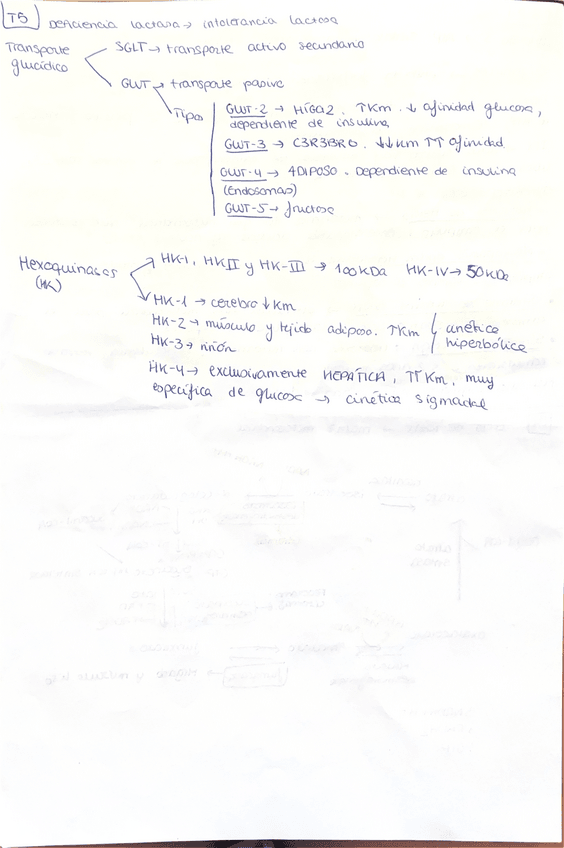 T5 Deficiencia lactasa → intolerancia lactosa
Transporte glucídico
SGLT → transporte activo secundario
GLUT → transporte pasivo
Tipos
GLUT-2 → HÍGADO. ↑Km. ↓ afinidad glucosa,
dependiente de insulina
GLUT-3 → CEREBRO. ↓↓Km ↑↑ afinidad
GLUT-4 → ADIPOSO. Dependiente de insulina
(Endosomas)
GLUT-5 → fructosa
Hexoquinasas
(HK)
HK-I, HKII y HK-III → 100KDa HK-IV → 50KDa
HK-1 → cerebro ↓Km
HK-2 → músculo y tejido adiposo. ↑Km
HK-3 → riñón
cinética
hiperbólica
HK-4 → exclusivamente HEPÁTICA, ↑↑Km, muy
específica de glucosa → cinética sigmoidal